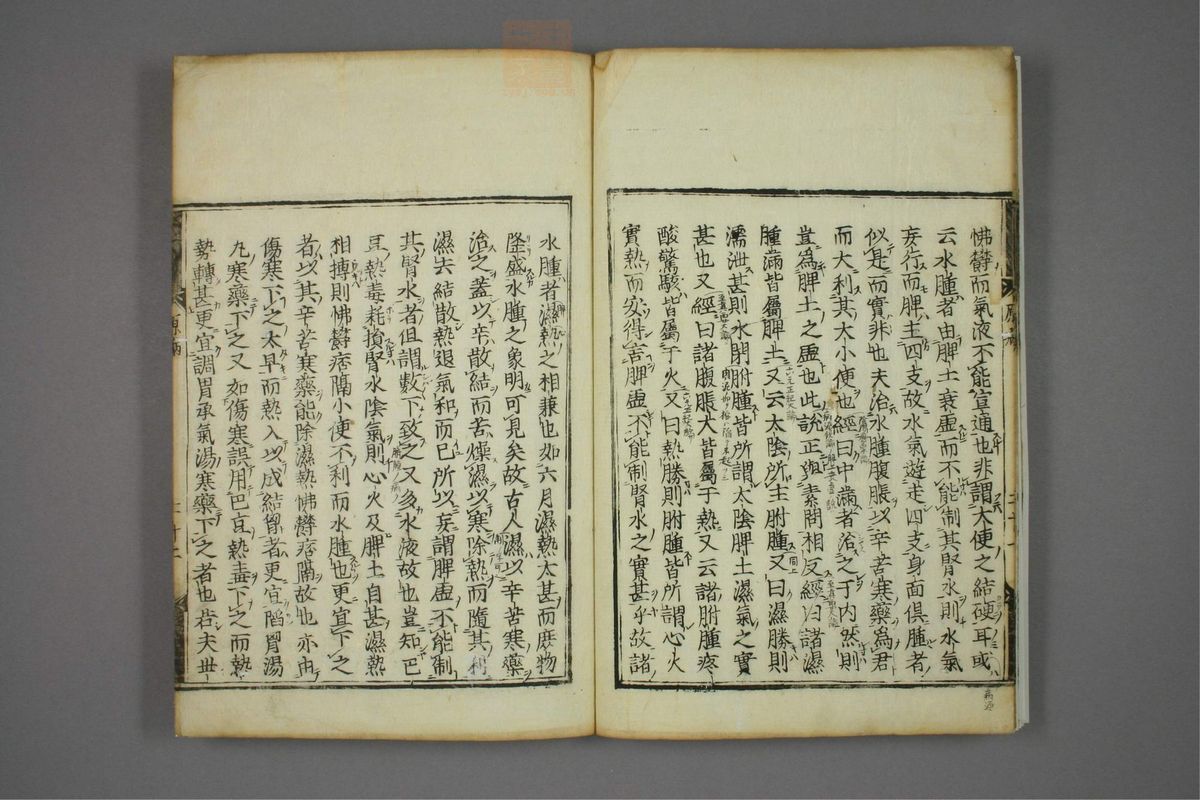 怫欝而氣液不能宣通也非謂大便之結硬耳或
云水腫者由脾土衰虚而不能制其腎水則水氣
妄行而脾主四支故水氣遊走四支身面倶腫者
似是而實非也夫治水腫腹脹以辛苦寒藥為君
而大利其大小便也經曰中滿者治之于内然則
豈為脾土之虚也此說正與素問相反經曰諸濕
腫滿皆屬脾土又云太陰所主胕腫又曰濕勝則
濡泄甚則水閉胕腫皆所謂太陰脾土濕氣之實
甚也又經曰諸腹脹大皆屬于熱又云諸胕腫疼
酸驚駭皆屬于火又曰熱勝則胕腫皆所謂心火
實熱而安得言脾虚不能制腎水之實甚乎故諸
水腫者濕熱之相兼也如六月濕熱太甚而庶物
隆盛水腫之象明可見矣故古人濕以辛苦寒藥
治之蓋以辛散結而苦燥濕以寒除熱而隨其利
濕去結散熱退氣和而已所以妄謂脾虚不能制
其腎水者但謂數下致之又多水液故也豈知巴
豆熱毒耗損腎水陰氣則心火及脾土自甚濕熱
相搏則怫欝痞隔小便不利而水腫也更宜下之
者以其辛苦寒藥能除濕熱怫欝痞隔故也亦由
傷寒下之太早而熱入以成結胷者更宜陷胷湯
丸寒藥下之又如傷寒誤用巴豆熱毒下之而熱
勢轉甚更宜調胃承氣湯寒藥下之者也若夫世
原病
二十二